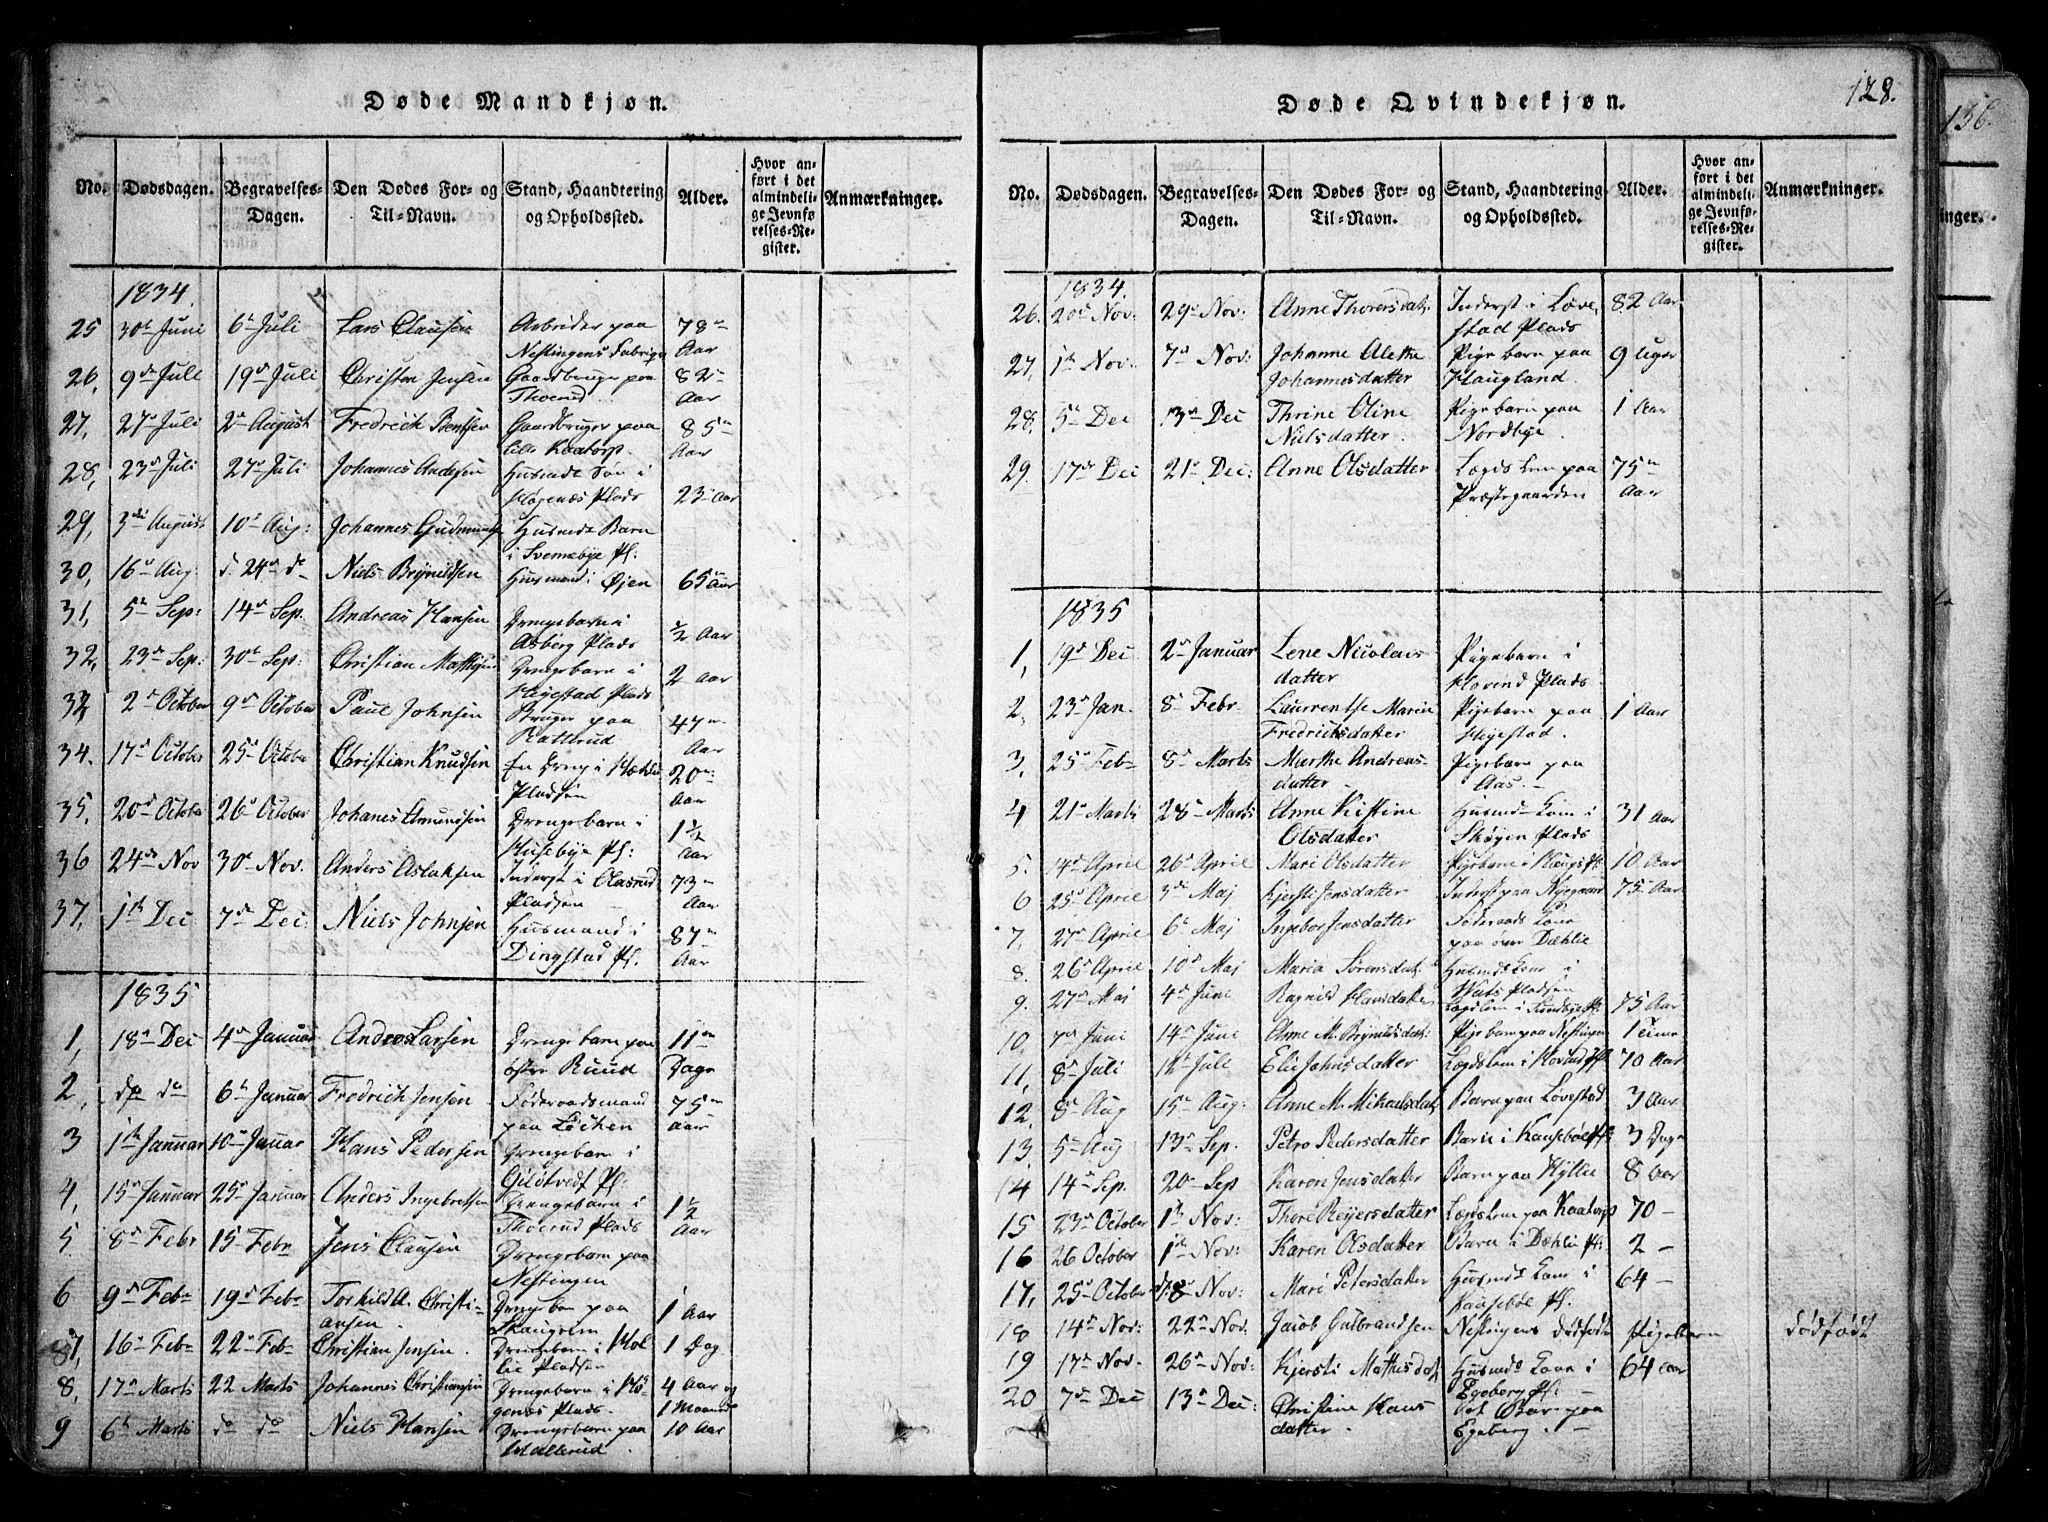 Døde Mandkjøn.
No. Dødsdagen. Begravelses-Dagen. Den Dødes For- og Til-Navn. Stand, Haandtering og Opholdssted. Alder. Hvor anført i det almindelige Jevnførelses-Register. Anmærkninger.
1834.
25 30t Juni 6t Juli Lars Clausen Arbeider paa 78
Nestingens Fabrique Aar
26, 9de Juli 19d Juli Christen Jensen Gaardbruger paa 82
Thoerud Aar
27, 27d Juli 2d August Fredrick Bentsen Gaardbruger paa 85
Lille Kaatorp. Aar
28, 23d Juli 27d Juli Johannes Andersen Husmds Søn i
Høgenæs Plads 23 Aar
29, 3die August 10d Aug: Johannes Gudmunds Husmds Barn
i Svennebye Pl:
30, 16d Aug: d. 24d do Niels Brynildsen Husmand i Øjen 65 Aar
31, 5t Sep: 14d Sep. Andreas Hansen Drengebarn i
Asberg Plads ½ Aar
32, 23d Sep: 30t Sep: Christian Mathisen Drengebarn i
Hejestad Plads 2 Aar
33, 2d October 9d October Paul Johnsen Bruger paa 47
Rallerud Aar
34. 17d October 25d October Christian Knudsen En Dreng i 20
Pladsen Aar
35. 20d October 26d October Johanes Amundsen Drengebarn i 1½
Husebye Pl: Aar
36 24de Nov 30t Nov. Anders Aslaksen Inderst i Olasrud 73
Pladsen Aar
37, 1ste Dec: 7de Dec: Niels Johnsen Husmand i 87
Dingstad Pl. Aar
1835
1, 18d Dec 4d Januar Anders Larsen Drengebarn paa 11
østre Ruud Dage
2, do do 6t Januar Fredrich Jensen Føderaadsmand 75
paa Løchen aar
3 1ste Januar 10d Januar Hans Pedersen Drengebarn i
Gislstvedt Pl:
4, 15d Januar 25d Januar Anders Ingebretsen Drengebarn i 1½
Thoerud Plads Aar
5. 8d Febr 15 Febr Jens Clausen Drengebarn paa
Nestingen
6 9d Febr 19d Febr Torkild A. Christi- Drengebarn paa 1 Aar
ansen. Skaugelim
7, 16d Febr 22d Febr Christian Jensen. Drengebarn i Hol 1 Dag
lie Pladsen
8, 17d Marts 22 Marts Johannes Christiansen Drengebarn i Hø- 4 Aar og
genæs Plads. 1 Maaned
9 6t Marts do do Niels Hansen Drengebarn paa 10 Aar
Wallerud
Døde Qvindekjøn. 128.
No. Dødsdagen. Begravelses-Dagen. Den Dødes For- og Til-Navn. Stand, Haandtering og Opholdssted. Alder. Hvor anført i det almindelige Jevnførelses-Register. Anmærkninger.
1834.
26. 20d Nov. 29d Nov: Anne Thorersdat: Inderst i Løve 82 Aar
stad Plads
27, 1ste Nov: 7d Nov: Johanne Alethe Pigebarn paa 9 Uger
Johannesdatter Haugland.
28. 5t Dec 13d Dec Thrine Oline Pigebarn paa 1 Aar
Nielsdatter. Nordbye.
29. 17de Dec 21d Dec: Anne Olsdatter Lægdslem paa 75
Præstegaarden Aar
1835
1, 19d Dec 2d Januar Lene Nicolais Pigebarn i
datter Hovind Plads.
2, 23d Jan. 8d Febr Laurentse Marie Pigebarn paa 1 Aar
Fredrichsdatter Hejestad.
3, 25d Feb 8d Marts Marthe Andreas- Pigebarn paa
datter Aas.
4 21d Marts 28d Marts Anne Kistine Husmds Kone i 31 Aar
Olsdatter Skøyen Plads
5. 14d April 26d April Mari Olsdatter Pigebarn i Haugs Pl: 10 Aar
6 25d April 3de Maj Kjersti Jensdatter Inderst paa Nyegaard 75 Aar
7, 27d April 6t Maj Ingebor Jensdatter Føderaads Kone
paa over Dæhlie
8. 26d April 10d Maj Maria Sørensdat: Husmds Kone i
9. 27d Maj 4d Juni Ragnild Hansdatter Pladsen 75 Aar
10. 7d Juni 14d Juni Anne M. Brynildsdat: Pigebarn paa Nestingen 1 Time
11, 8d Juli 12t Juli Elie Johnsdatter Lægdslem i Hovind Pl 70 Aar
12. 8d Aug 15d Aug: Anne M. Mikaelsdat: Barn paa Løvestad 3 Aar
13, 5d Aug 13d Sep. Petro Pedersdatter Barn i Kausebøl Pl: 3 Dage
14 14d Sep. 20d Sep Karen Jensdatter Barn paa Hyllie 8 Aar
15 23d October 1ste Nov: Thore Reyersdatter Lægdslem paa Kaatorp 70 –
16 26 October 1ste Nov: Karen Olsdatter Barn i Dæhlie Pl: 2 –
17, 25d October 8d Nov: Mari Petersdatter Husmds Kone i 64 –
Kausebøl Pl.
18 14d Nov: 22d Nov. Jacob Gulbrandsen Nestingens dødfødte Pigebarn dødfødt
19 17d Nov. 26d Nov: Kjersti Mathisdat Husmds Kone i 64 aar
Egeberg Pl:
20 7de Dec 13d Dec: Christine Hans Et Barn paa
datter. Egeberg.
136.
inger.